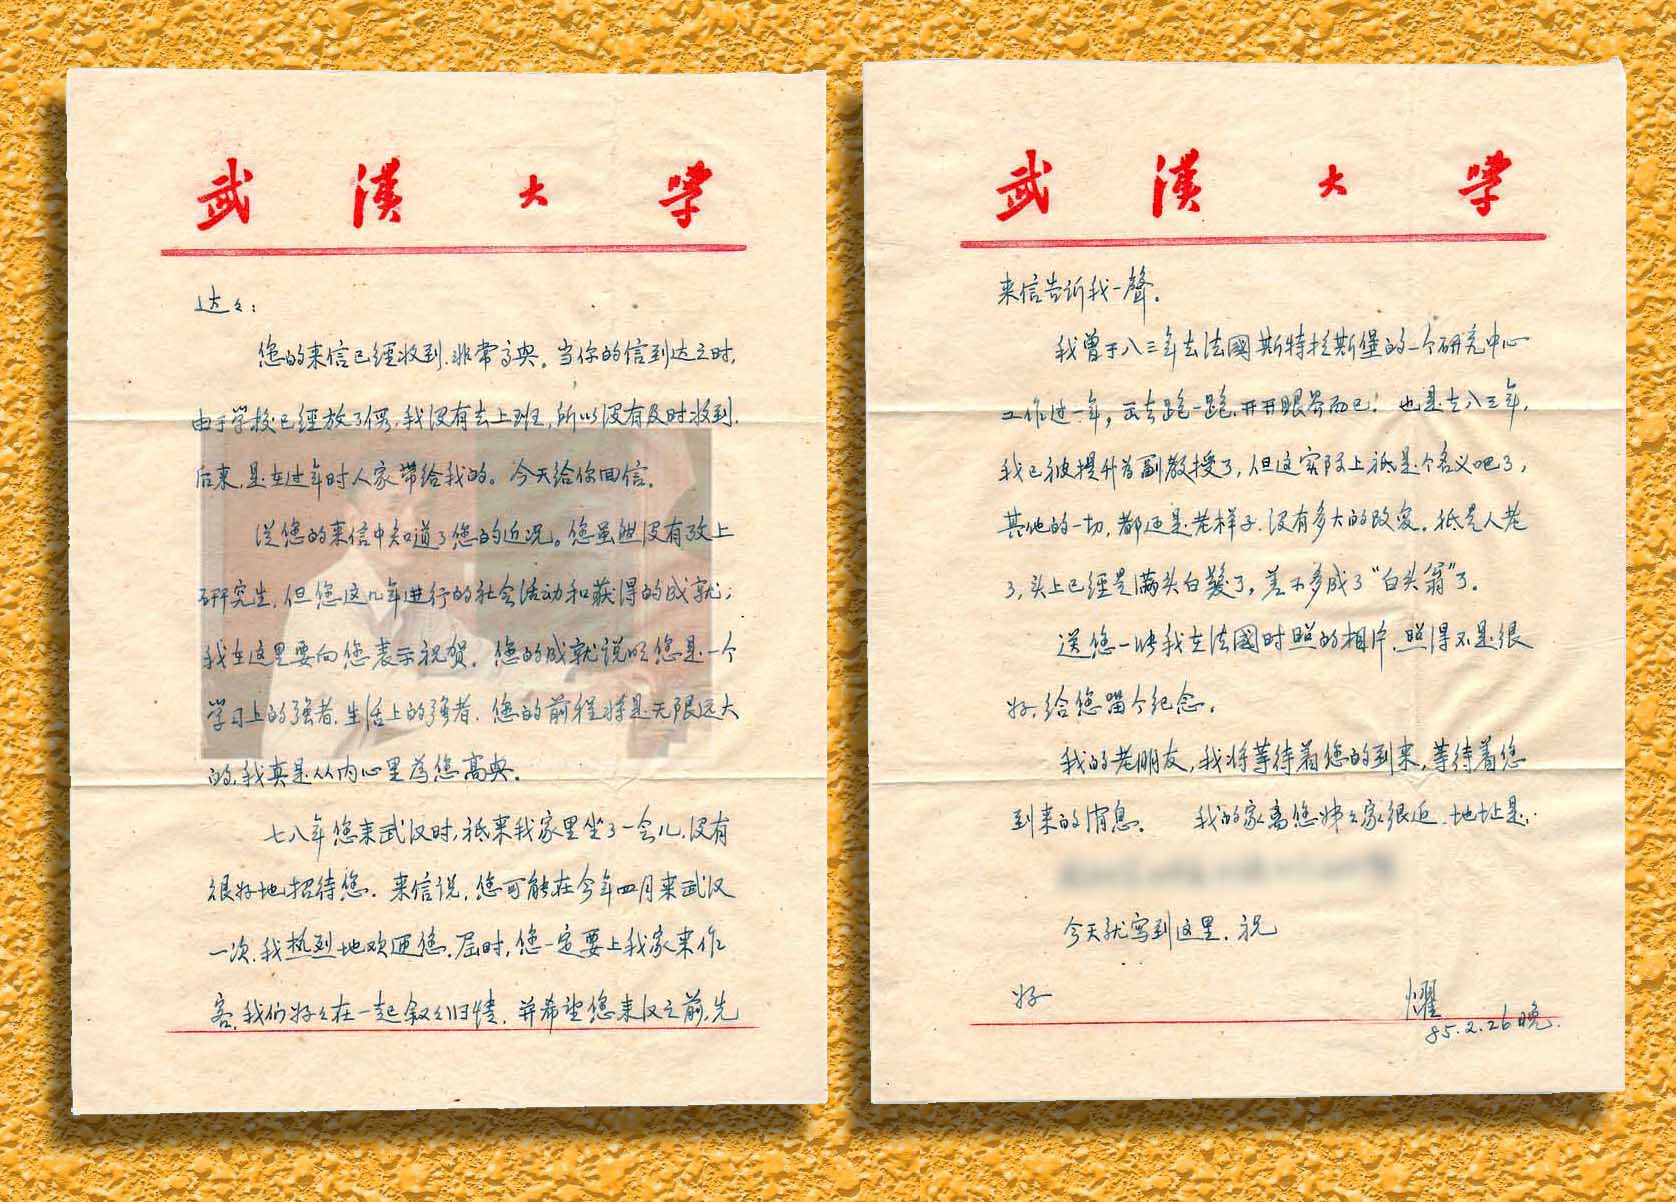 武漢大学
达々：
您的来信已經收到，非常高興。当你的信到达之时，
由于学校已經放了假，我没有去上班，所以没有及时收到，
后来，是在过年时人家带给我的。今天给你回信。
从您的来信中知道了您的近况。您虽然没有攷上
研究生，但您这几年进行的社会活动和获得的成就；
我在这里要向您表示祝贺。您的成就说明您是一个
学习上的强者，生活上的强者，您的前程将是无限远大
的，我真是从内心里为您高興。
七八年您来武汉时，祗来我家里坐了一会儿，没有
很好地招待您。来信说，您可能在今年四月来武汉
一次，我热烈地欢迎您。届时，您一定要上我家来作
客，我们好々在一起叙々旧情，并希望您来汉之前，先
武漢大学
来信告诉我一聲。
我曾于八三年去法國斯特拉斯堡的一个研究中心
工作过一年，出去跑一跑，开开眼界而已！也是去八三年，
我已被提升为副教授了，但这实际上祗是个名义吧了，
其他的一切，都还是老样子，没有多大的改变。祗是人老
了，头上已經是满头白髮了，差不多成了“白头翁”了。
送您一张我在法國时照的相片，照得不是很
好，给您留个纪念。
我的老朋友，我将等待着您的到来，等待着您
到来的消息。 我的家离您姊々家很近，地址是：
今天就写到这里，祝
好
耀
85.2.26晚.